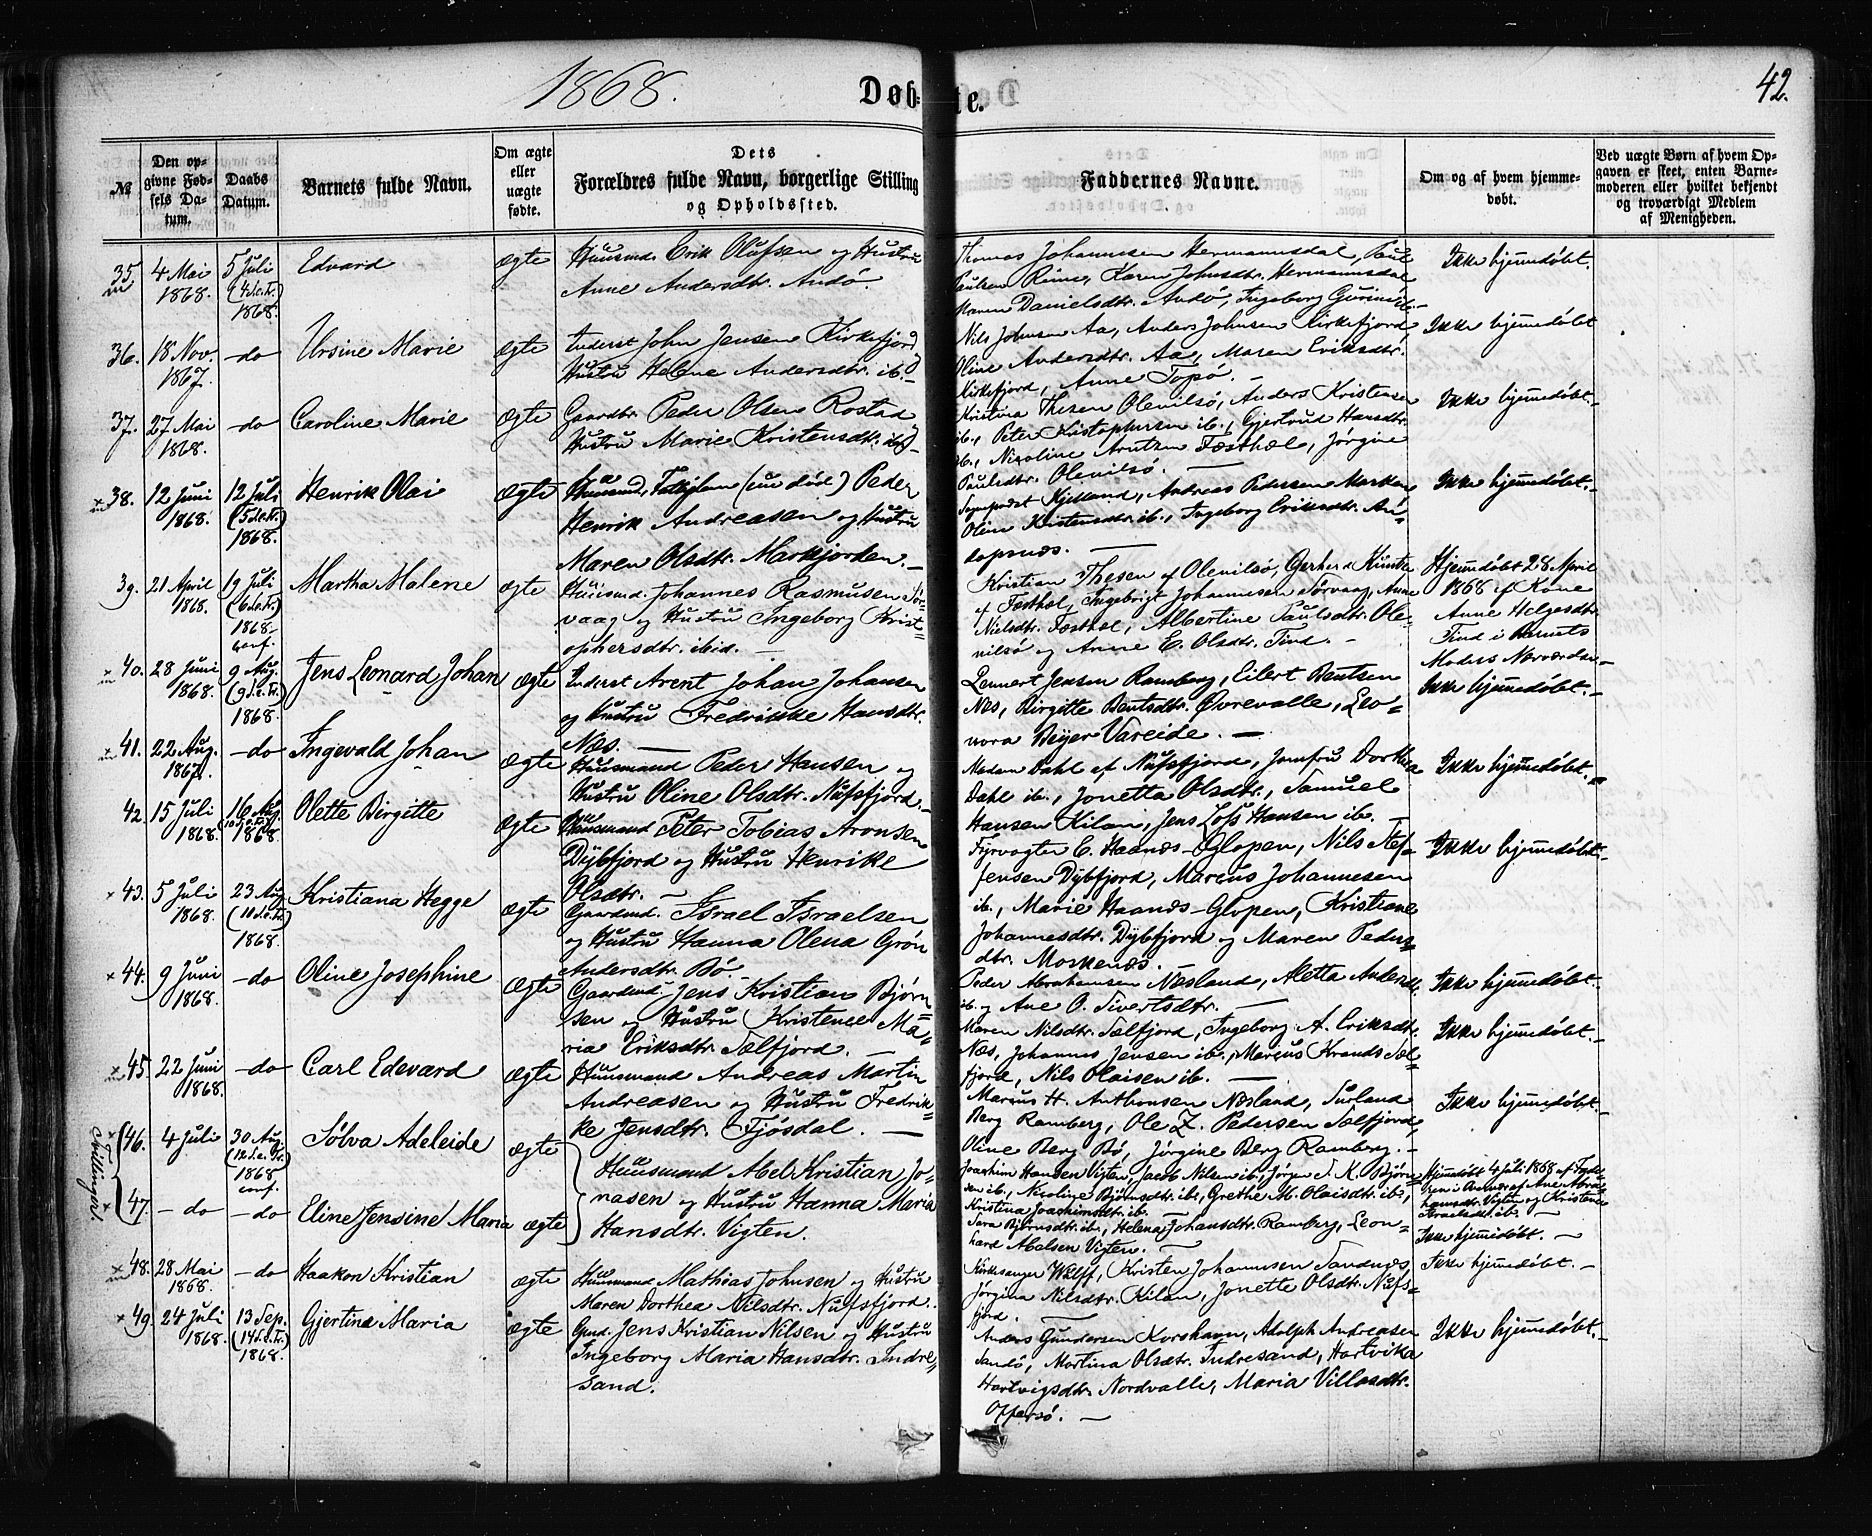 1868.
Døbte.
42.
№
Den opgivne Fødsels Datum.
Daabs Datum.
Barnets fulde Navn.
Om ægte eller uægte fødte.
Dets Forældres fulde Navn, borgerlige Stilling og Opholdssted.
Faddernes Navne.
Om og af hvem hjemmedøbt.
Ved uægte Børn af hvem Opgaven er skeet, enten Barnemoderen eller hvilket bekjendt og troværdigt Medlem af Menigheden.
35 4 Mai 1868. 5 Juli (4 S.e.Tr.) 1868. Edvard ægte
Huusmd. Erik Olufsen og Hustru
Anne Andersdtr. Andö.
Thomas Johannesen Hermannsdal, Paul
Paulsen Reine, Karen Johnsdtr. Hermannsdal
Maren Danielsdtr. Andö, Ingeborg
Ikke hjemmedøbt.
36. 18 Nov. 1867. -do Ursine Marie ægte
Inderst John Jensen Kirkefjord
Hustru Helene Andersdtr. ib.
Nils Johnsen Aa, Anders Johnsen Kirkefjord,
Oline Andersdtr. Aa, Maren Eriksdtr.
Kirkefjord, Anne Topö.
Ikke hjemmedøbt
37. 27 Mai 1868. -do Caroline Marie ægte
Gaardbr. Peder Olsen Rostad
Hustru Marie Kristensdtr. ib.
Kristina Thesen Olenilsö, Anders Kristensen
ib., Peter Kristophersen ib., Gjertrud Hansdtr.
ib., Nicoline Arntzen Festhæl, Jörgine
Paulsdtr. Olenilsö.
Ikke hjemmedøbt.
38. 12 Juni 1868. 12 Juli (5 S.e.Tr.) 1868. Henrik Olai ægte
Huusmd. (nu död) Peder
Henrik Andreasen og Hustru
Maren Olsdtr. Markjorden.
Kjelland, Andreas Pedersen Marken
Oline Kristensdtr. ib., Ingeborg Eriksdtr. An-
dopsnæs.
Ikke hjemmedøbt.
39. 21 April 1868. 19 Juli (6 S.e.Tr.) 1868. conf. Martha Malene ægte
Huusmd. Johannes Rasmusen Sör-
vaag og Hustru Ingeborg Krist-
ophersdtr. ibid.
Kristian Thesen af Olenilsö, Gerhard Kunitz
af Festhæl, Ingebrigt Johannesen Sörvaag, Anne
Nielsdtr. Festhæl, Albertine Paulsdtr. Ole-
nilsö og Anne E. Olsdtr. Tind.
Hjemmedøbt 28 April
1868 af Kone
Anne Helgesdtr.
Tind i Barnets
Moders Nærværelse
40. 28 Juni 1868. 9 Aug. (9 S.e.Tr.) 1868. Jens Leonard Johan ægte
Inderst Arent Johan Johansen
og Hustru Fredrikke Hansdtr.
Næs.
Lennert Jensen Ramberg, Eilert Bentsen
Næs, Birgitte Bentsdtr. Øvrevalle, Leo-
nora Beyer Vareide.
Ikke hjemmedøbt.
41. 22 Aug. 1867. -do Ingevald Johan ægte
Huusmand Peder Hansen og
Hustru Oline Olsdtr. Nufsfjord.
Madam Dahl af Nufsfjord, Jomfru Dorthea
Dahl ib., Jonetta Olsdtr., Samuel
Hansen Kilan, Jens Lofs Hansen ib.
Ikke hjemmedøbt.
42. 15 Juli 1868. 16 Aug. (10 S.e.Tr.) 1868 Olette Birgitte ægte
Huusmand Peter Tobias Aronsen
Dybfjord og Hustru Henrike
Olsdtr.
Fyrvogter C. Haands-Glopen, Nils Stef-
fensen Dybfjord, Marcus Johannesen
ib., Marie Haands-Glopen, Kristiane
Johannesdtr. Dybfjord og Maren Peders-
dtr. Moskenæs.
Ikke hjemmedøbt.
43. 5 Juli 1868. 23 Aug. (11 S.e.Tr.) 1868. Kristiana Hegge ægte
Gaardmd. Israel Israelsen
og Hustru Hanna Olena Grön
Andersdtr. Bö.
Peder Abrahamsen Næsland, Aletta Andersdtr.
ib. og Ane O. Sivertsdtr.
Ikke hjemmedøbt.
44. 9 Juni 1868. -do Oline Josephine ægte
Gaardmd. Jens Kristian Björn-
sen og Hustru Kristence Ma-
ria Eriksdtr. Sælfjord.
Maren Nilsdtr. Sælfjord, Ingeborg A. Eriksdtr.
Næs, Johannes Jensen ib., Marcus Krands Sæl-
fjord, Nils Olaisen ib.
Ikke hjemmedøbt.
45. 22 Juni 1868. -do Carl Edevard ægte
Huusmand Andreas Martin
Andreasen og Hustru Fredrik-
ke Jensdtr. Fjösdal.
Marcus H. Anthonsen Næsland, Surland
Berg Ramberg, Ole Z. Pedersen Sælfjord,
Oline Berg Bö, Jörgine Berg Ramberg.
Ikke hjemmedøbt.
Tvillingpar.
46. 4 Juli 30 Aug. (12 S.e.Tr.) 1868 conf. Sölva Adeleide ægte
Huusmand Abel Kristian Jo-
nasen og Hustru Hanna Maria
Hansdtr. Vigten.
Joachim Hansen Vigten, Jacob Nilsen ib., Jörgen S. K. Björn-
sen ib., Nicoline Björnsdtr. ib., Grethe M. Olaisdtr. ib.,
Kristina Joachimsdtr. ib.
Hjemmedøbt 4 Juli 1868 af
Ane Abra-
hamsdtr. Vigten og Kristence
Israelsdtr. ib.
47. -do -do Eline Jensine Maria ægte
Sara Björnsdtr. ib., Helena Johansdtr. Ramberg, Leon-
hard Abelsen Vigten.
Ikke hjemmedøbt.
48. 28 Mai 1868. -do Haakon Kristian ægte
Huusmand Mathias Johnsen og Hustru
Maren Dorthea Nilsdtr. Nufsfjord.
Kirkesanger Wulff, Kristen Johannesen Sandnæs,
Jörgina Nilsdtr. Kilan, Jonette Olsdtr. Nufs-
fjord.
Ikke hjemmedøbt.
49. 24 Juli 1868. 13 Sep. (14 S.e.Tr.) 1868. Gjertine Maria ægte
Gmd. Jens Kristian Nilsen og Hustru
Ingeborg Maria Hansdtr. Indre-
sand.
Anders Gundersen Korshavn, Adolph Andreasen
Sandö, Martina Olsdtr. Indresand, Hartvika
Hartvigsdtr. Nordvalle, Maria Villasdtr.
Offersö.
Ikke hjemmedøbt.